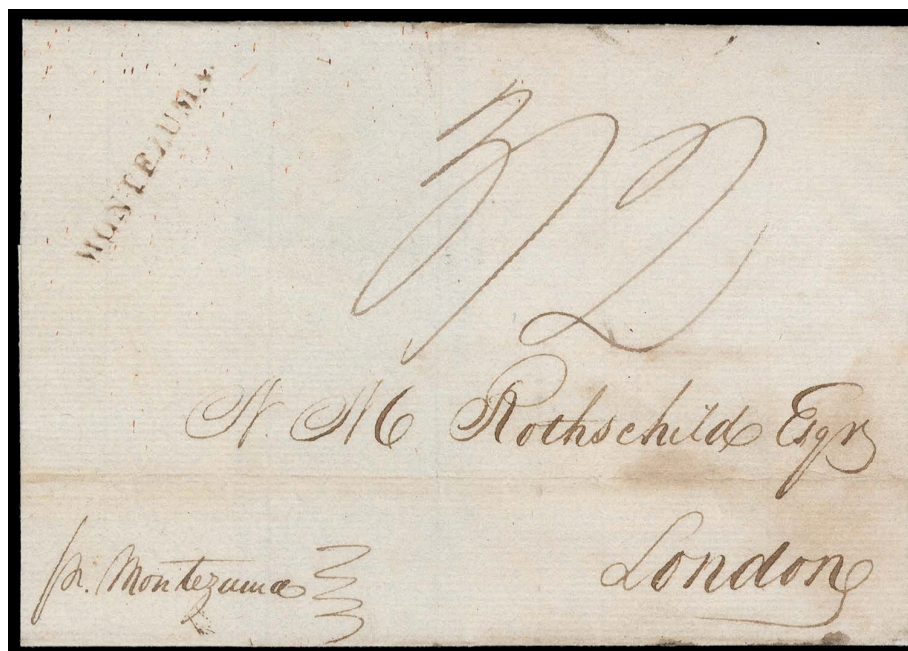 MONTEZUMA.
N M Rothschild Esqr
London
pr. Montezuma